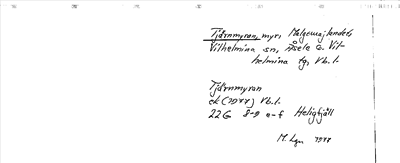 Tjärnmyran, myr, Malgomajlandet
Vilhelmina sn, Åsele o. Vil-
helmina tg, Vb.l.
Tjärnmyran
ek (1977) Vb.l.
22G 8-9 e-f Heligfjäll
M. Lgn 1977